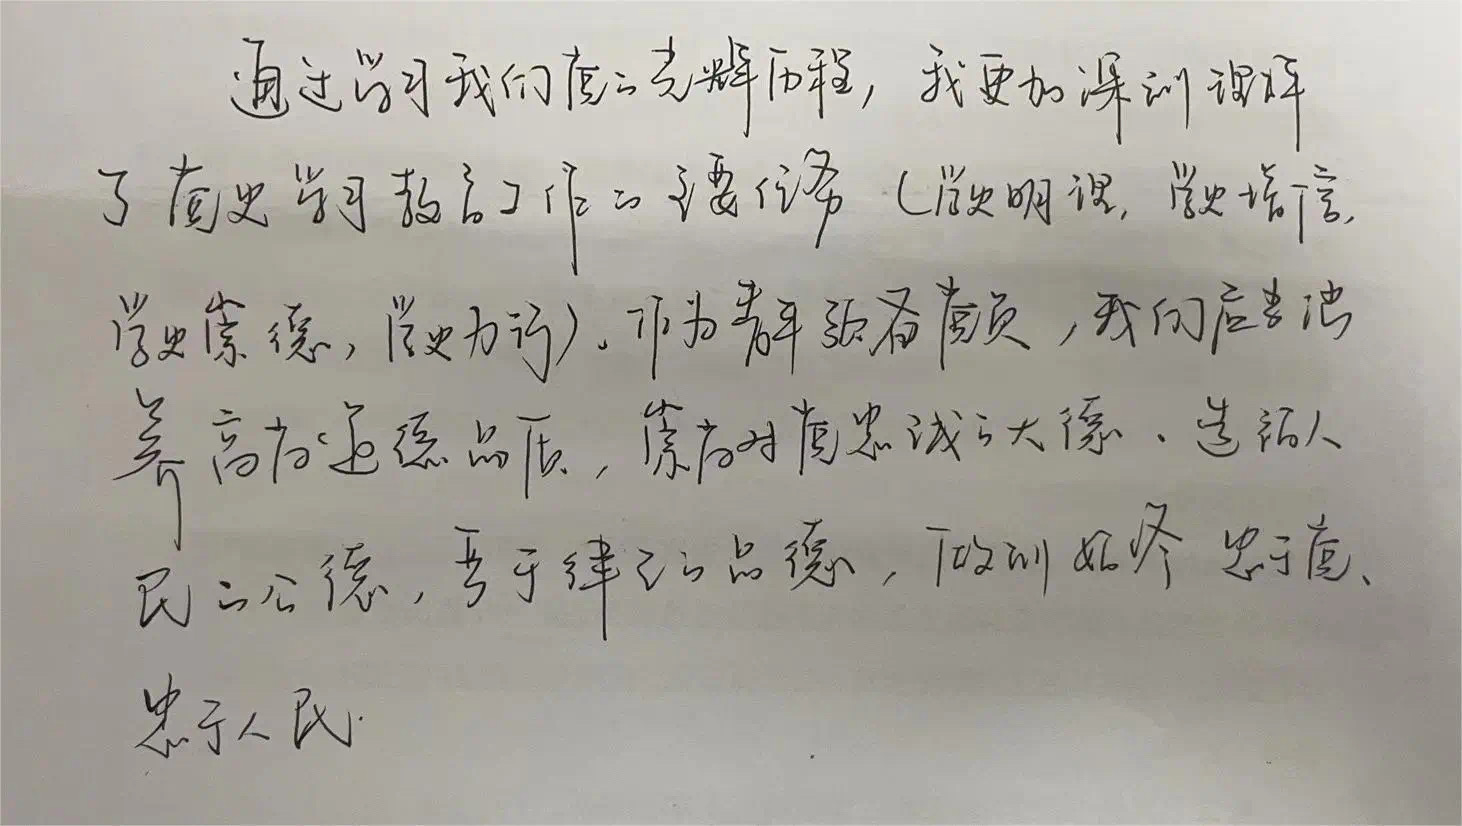 通过学习我们党的光辉历程，我更加深刻理解
了党史学习教育工作的主要任务（学史明理，学史增信，
学史崇德，学史力行）。作为青年预备党员，我们应当涵
养高尚道德品质，崇尚对党忠诚的大德、造福人
民的公德，善于律己的品德，做到始终忠于党、
忠于人民.